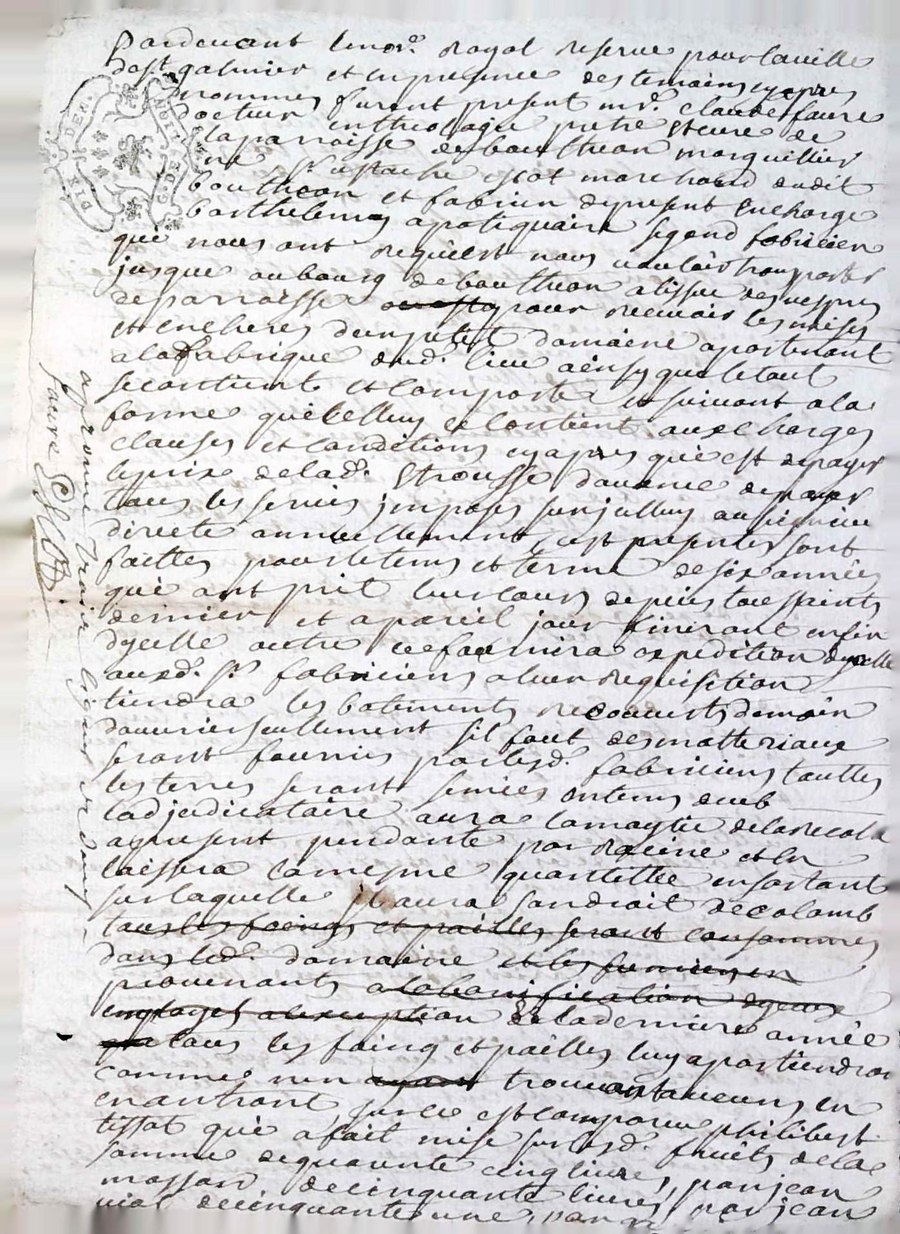 Pardevant le nore. royal reservé pour la ville
de st galmier et en presence des temoins cy apres
nommes furent present mre. Claude faure
docteur en theologie pretre et curé de
la parroisse de boutheon marguillier
né sr. ustache marchand dudit
bouthéon et fabricien de present en charge
barthelemy apotiquaire segond fabricien
qui nous ont requiert nous vouloir transporter
jusque au bourg de bouthéon a lissue des vespres
de parroisse pour recevoir les mises
et encheres dun petit domaine apartenant
a la fabrique dud. lieu aensy que le tout
se contient et comporte et suivant a la
forme quicelluy se contient aux charges
clauses et conditions cy apres qui est de payer
le prix de lad. de payer
tous les servis imposés sur jcelluy au
directe annuellement, cest presentes sont
faittes pour le tems et terme de six années
qui ont prit leur cours depuis toussaints
dernier et a pareil jour finiront en fin
dycelle outre ce fournira expedition dycelle
auxd. srs. fabriciens a leur requisition
tiendra les batements recouverts de main
douvrier seullement sil faut des matteriaux
seront fournis par lesd. fabriciens touttes
les terres seront semées en tems deub
ladjudicataire aura la moytié de la recolte
a present pendante par racine et en
laissera la mesme quantitté en sortant
sur laquelle jl aura son droit de colomb
tous les foings et pailles seront consommés
dans led. domaine et les fumiers en
provenants a la bonification dyceux
a lexception de la derniere année
tous les foing et pailles luy apartiendront
comme nen trouvant aucuns en
entrant, sur ce est comparu philibert
tissot qui a fait mise sur lesd. fruits de la
somme de quarante cinq livres, par jean
massard de cinquante livres, par jean
vial de cinquante une, par
aprouvé traize lignes
faure